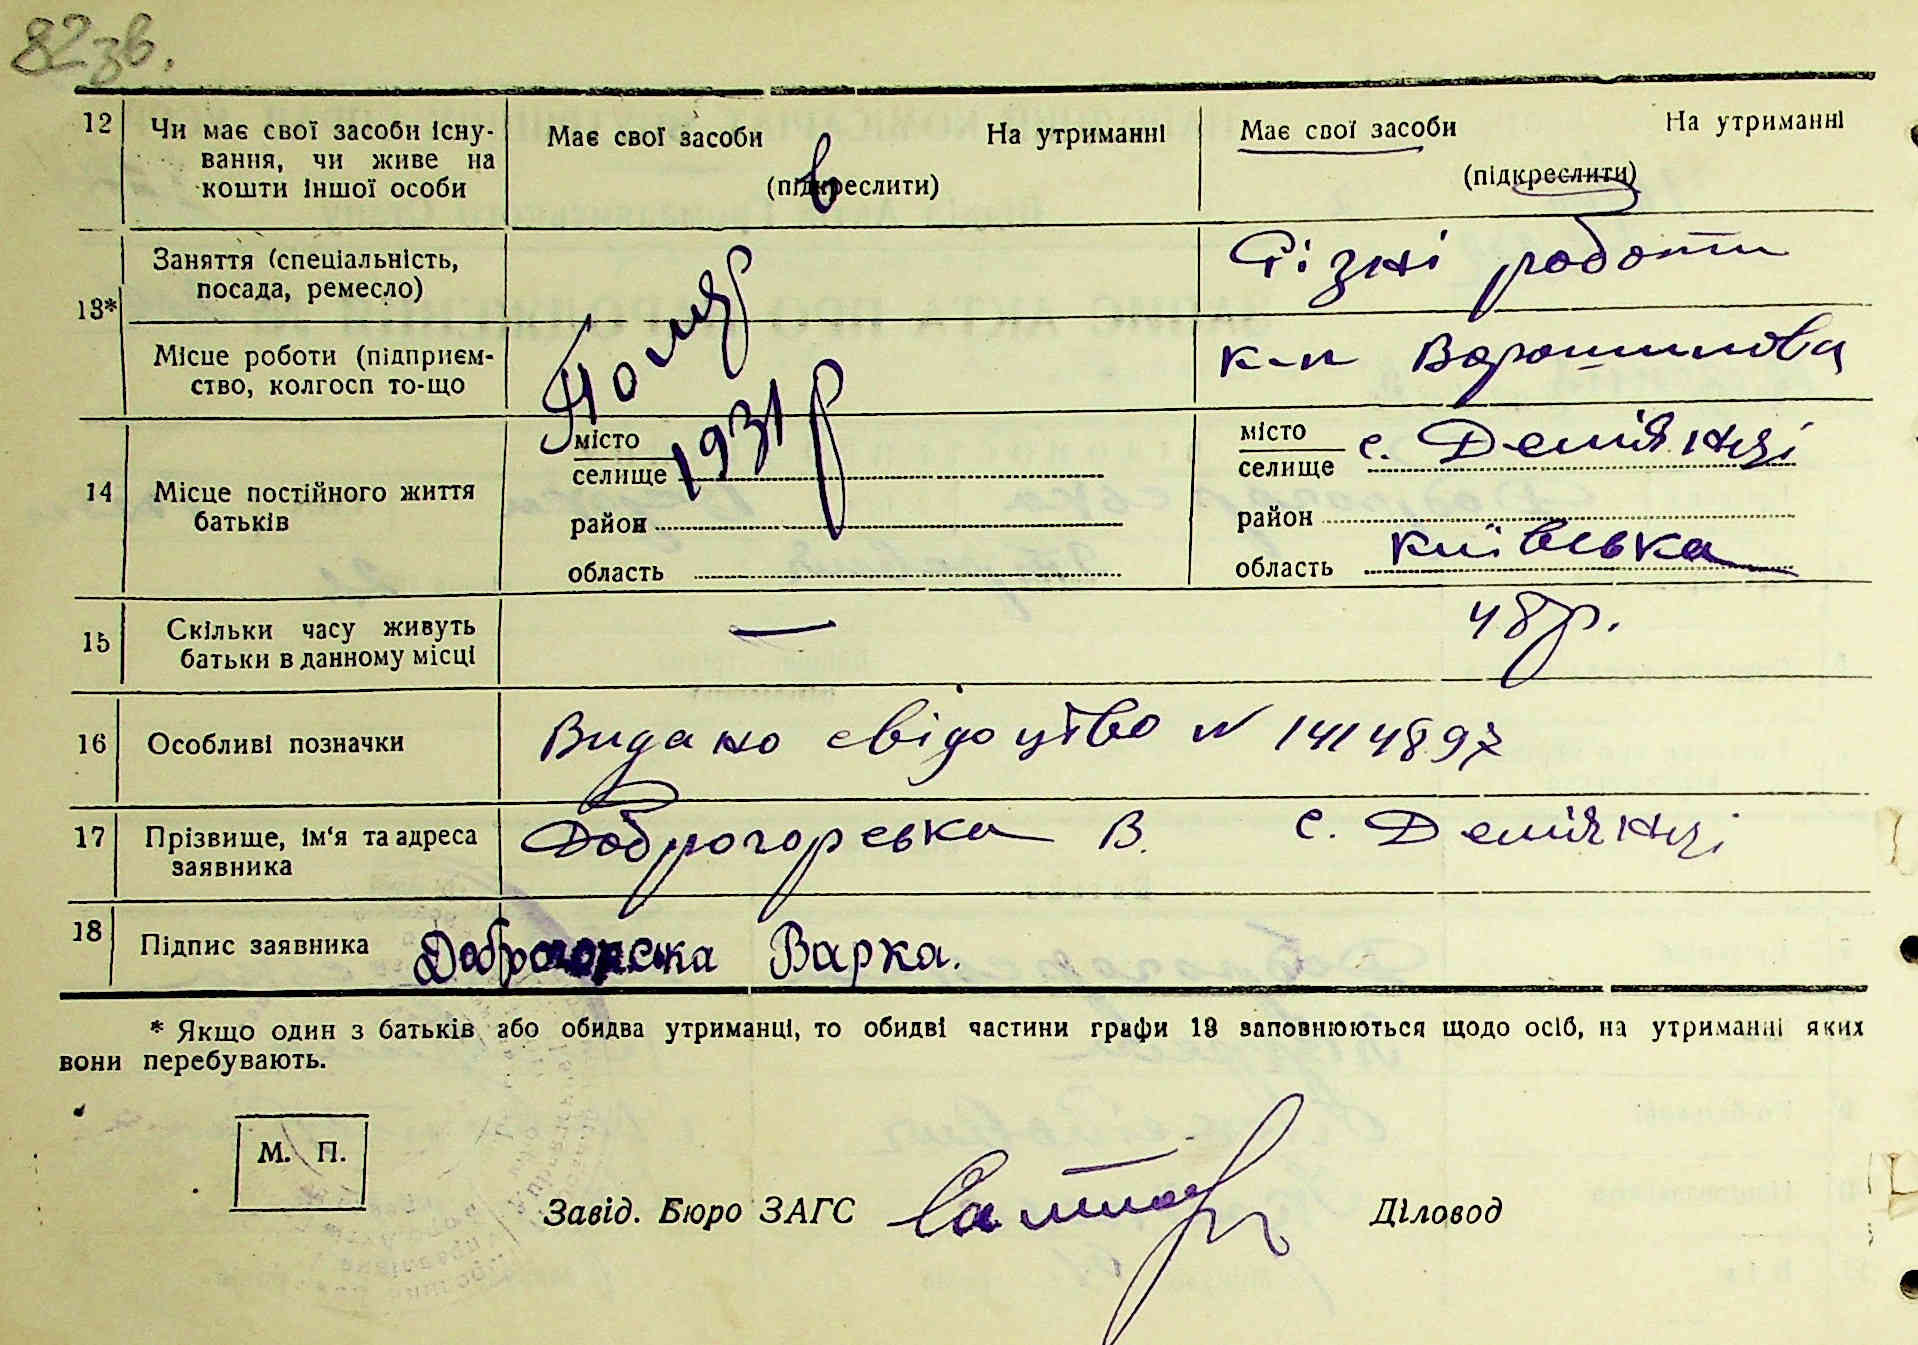 82зв.
12 Чи має свої засоби існу-
вання, чи живе на
кошти іншої особи
Має свої засоби На утриманні
(підкреслити)
Має свої засоби На утриманні
(підкреслити)
13* Заняття (спеціальність,
посада, ремесло)
Різні роботи
Місце роботи (підприєм-
ство, колгосп то-що
к-п Ворошилова
Помер
в 1931 р
14 Місце постійного життя
батьків
місто
селище
район
область
місто
селище с. Дем'янці
район
область Київська
15 Скільки часу живуть
батьки в данному місці
— 48 р.
16 Особливі позначки Видано свідоцтво N 1414897
17 Прізвище, ім'я та адреса
заявника
Доброгорська В. с. Дем'янці
18 Підпис заявника Доброгорська Варка.
* Якщо один з батьків або обидва утриманці, то обидві частини графи 13 заповнюються щодо осіб, на утриманні яких
вони перебувають.
М. П.
Завід. Бюро ЗАГС Діловод